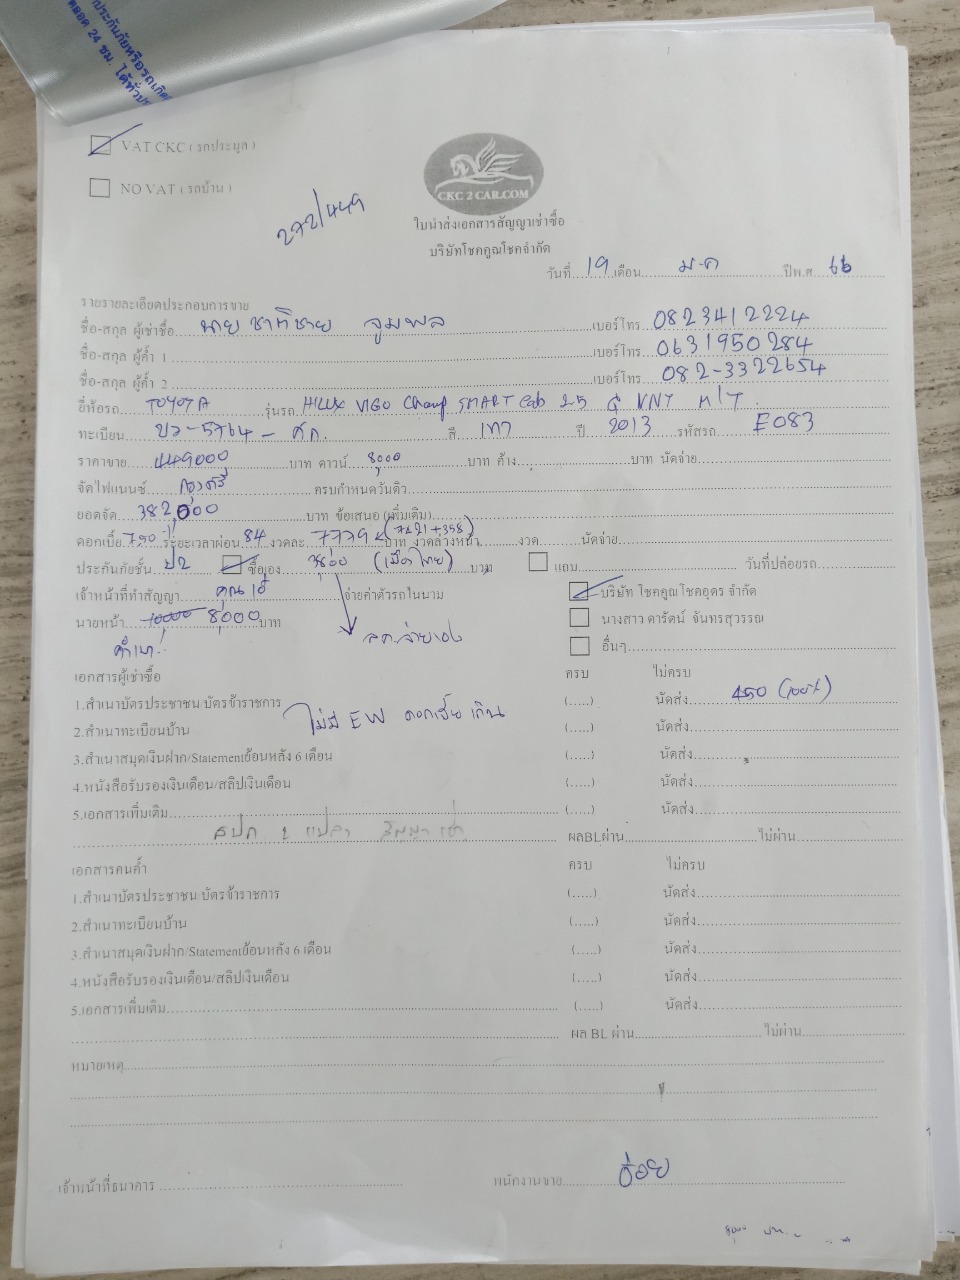 ประกันภัยหรือรถเกิด
ตลอด 24 ชม. ได้ทั่วประ
VAT CKC ( รถประมูล )
NO VAT ( รถบ้าน )
CKC 2 CAR.COM
272/449
ใบนำส่งเอกสารสัญญาเช่าซื้อ
บริษัทโชคคูณโชคจำกัด
วันที่ 19 เดือน ม.ค ปีพ.ศ 66
รายรายละเอียดประกอบการขาย
ชื่อ-สกุล ผู้เช่าซื้อ นาย ชาติชาย จูมพล เบอร์โทร 0823412224
ชื่อ-สกุล ผู้ค้ำ 1 เบอร์โทร 0631950284
ชื่อ-สกุล ผู้ค้ำ 2 เบอร์โทร 082-3322654
ยี่ห้อรถ TOYOTA รุ่นรถ HILUX VIGO Champ SMART Cab 2.5 G VNT M/T
ทะเบียน บว-5764- ศก. สี เทา ปี 2013 รหัสรถ E083
ราคาขาย 449000 บาท ดาวน์ 8000 บาท ค้าง บาท นัดจ่าย
จัดไฟแนนซ์ กรุงศรี ครบกำหนดวันดิว
ยอดจัด 382,000 บาท ข้อเสนอ (เพิ่มเติม)
ดอกเบี้ย 7.90 ระยะเวลาผ่อน 84 งวดละ 7779 (7421+358) บาท งวดล่วงหน้า งวด นัดจ่าย
ประกันภัยชั้น ป2 ซื้อเอง 7800 (เมืองไทย) บาท แถม วันที่ปล่อยรถ
เจ้าหน้าที่ทำสัญญา คุณเอ้ จ่ายค่าตัวรถในนาม บริษัท โชคคูณโชคอุดร จำกัด
นายหน้า 10000 8000 บาท นางสาว ดารัตน์ จันทรสุวรรณ
ลค.จ่ายเอง อื่นๆ
เอกสารผู้เช่าซื้อ ครบ ไม่ครบ
1.สำเนาบัตรประชาชน/บัตรข้าราชการ (.....) นัดส่ง 450 (100%)
ไม่มี EW ดอกเบี้ย เกิน
2.สำเนาทะเบียนบ้าน (.....) นัดส่ง
3.สำเนาสมุดเงินฝาก/Statementย้อนหลัง 6 เดือน (.....) นัดส่ง
4.หนังสือรับรองเงินเดือน/สลิปเงินเดือน (.....) นัดส่ง
5.เอกสารเพิ่มเติม (.....) นัดส่ง
สปก 2 แปลง สัญญาเช่า ผลBLผ่าน ไม่ผ่าน
เอกสารคนค้ำ ครบ ไม่ครบ
1.สำเนาบัตรประชาชน/บัตรข้าราชการ (.....) นัดส่ง
2.สำเนาทะเบียนบ้าน (.....) นัดส่ง
3.สำเนาสมุดเงินฝาก/Statementย้อนหลัง 6 เดือน (.....) นัดส่ง
4.หนังสือรับรองเงินเดือน/สลิปเงินเดือน (.....) นัดส่ง
5.เอกสารเพิ่มเติม (.....) นัดส่ง
ผล BL ผ่าน ไม่ผ่าน
หมายเหตุ
เจ้าหน้าที่ธนาคาร พนักงานขาย อ้อย